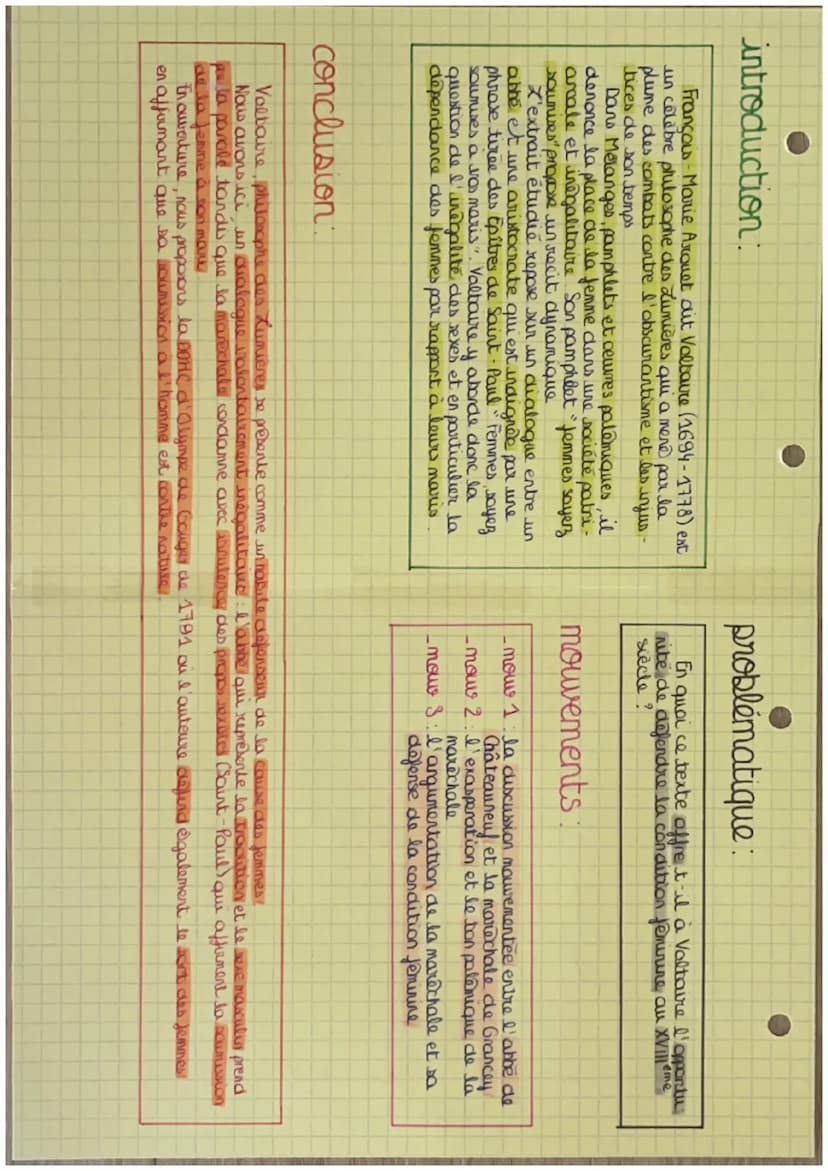 introduction :
François-Marie Arouet dit Voltaire (1694-1778) est
un célèbre philosophe des Lumières qui a mené par la
plume des combats contre l'obscurantisme et les injus-
tices de son temps
Dans Mélanges, pamphlets et oeuvres polémiques, il
dénonce la place de la femme dans une société patri-
arcale et inégalitaire. Son pamphlet "femmes soyez
soumises" propose un récit dynamique
L'extrait étudié repose sur un dialogue entre un
abbé et une aristocrate qui est indignée par une
phrase tirée des Epîtres de Saint-Paul "Femmes, soyez
soumises a vos maris". Voltaire y aborde donc la
question de l'inégalité des sexes et en particulier la
dépendance des femmes par rapport à leurs maris.
problématique :
En quoi ce texte offre t-il à Voltaire l'opportu
nité de défendre la condition féminine au XVIIIème
siècle ?
mouvements :
- mouv 1 : la discussion mouvementée entre l'abbé de
Châteauneuf et la maréchale de Grancey
- mouv 2 : l'exaspération et le ton polémique de la
maréchale
- mouv 3 : l'argumentation de la maréchale et sa
défense de la condition féminine
conclusion :
Voltaire, philosophe des Lumières se présente comme un habile défenseur de la cause des femmes.
Nous avons ici, un dialogue volontairement inégalitaire : l'abbé qui représente la tradition et le sexe masculin prend
peu la parole tandis que la maréchale condamne avec virulence des propos sexistes (Saint-Paul) qui affirment la soumission
de la femme à son mari.
En ouverture, nous proposons la DDFC d'Olympe de Gouges de 1791 où l'auteure défend également le sort des femmes
en affirmant que sa soumission a l'homme est contre nature.